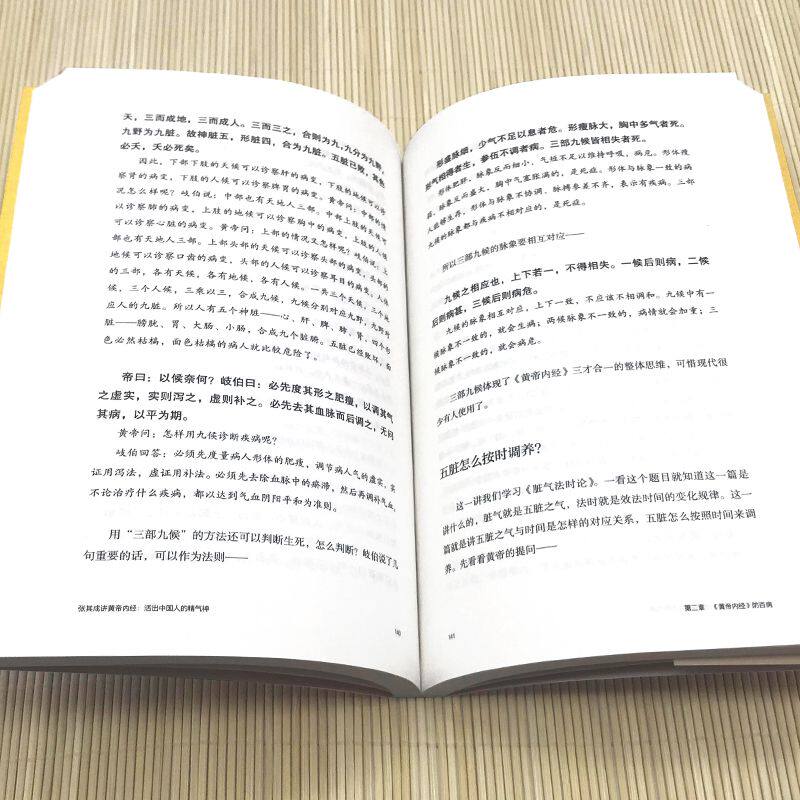 天，三而成地，三而成人。三而三之，合则为九，九分为九野，
九野为九脏。故神脏五，形脏四，合为九脏。五脏已败，其色
必夭，夭必死矣。
因此，下部下肢的天候可以诊察肝的病变，下肢的地候可以诊
察肾的病变，下肢的人候可以诊察脾胃的病变。黄帝问：中部的情
况怎么样呢？岐伯说：中部也有天地人三部。中部上肢的天候可
以诊察肺的病变，上肢的地候可以诊察胸中的病变，上肢的人候可
以诊察心脏的病变。黄帝问：上部的情况又怎样呢？岐伯说：上
部也有天地人三部。上部头部的天候可以诊察头部的病变，头部的
地候可以诊察口齿的病变，头部的人候可以诊察耳目的病变。人体
的三部，各有天候，各有地候，各有人候。一共三个天候，三个地
候，三个人候，三乘以三，合成九候，九候分别对应九野，九野对
应人的九脏。所以人有五个神脏——心、肝、脾、肺、肾，四个形
脏——膀胱、胃、大肠、小肠，合成九个脏腑。五脏已经败坏，面
色必然枯槁，面色枯槁的病人就比较危险了。
帝曰：以候奈何？岐伯曰：必先度其形之肥瘦，以调其气
之虚实，实则泻之，虚则补之。必先去其血脉而后调之，无问
其病，以平为期。
黄帝问：怎样用九候诊断疾病呢？
岐伯回答：必须先度量病人形体的肥瘦，调节病人气的虚实，实
证用泻法，虚证用补法。必须先去除血脉中的瘀滞，然后再调补气血，
不论治疗什么疾病，都以达到气血阴阳平和为准则。
用“三部九候”的方法还可以判断生死，怎么判断？岐伯说了几
句重要的话，可以作为法则——
张其成讲黄帝内经：活出中国人的精气神
140
形盛脉细，少气不足以息者危。形瘦脉大，胸中多气者死。
形气相得者生，参伍不调者病。三部九候皆相失者死。
形体肥胖，脉象反而细小，气短不足以维持呼吸，病危。形体瘦
弱，脉象反而盛大，胸中气塞胀满的，是死症。形体与脉象一致的病
人能够生存，形体与脉象不协调，脉搏参差不齐，表示有疾病。三部
九候的脉象都与疾病不相对应的，是死症。
所以三部九候的脉象要相互对应——
九候之相应也，上下若一，不得相失。一候后则病，二候
后则病甚，三候后则病危。
九候的脉象相互对应，上下一致，不应该不相调和。九候中有一
候脉象不一致的，就会生病；两候脉象不一致的，病情就会加重；三
候脉象不一致的，就会病危。
三部九候体现了《黄帝内经》三才合一的整体思维，可惜现代很
少有人使用了。
五脏怎么按时调养？
这一讲我们学习《脏气法时论》。一看这个题目就知道这一篇是
讲什么的，脏气就是五脏之气，法时就是效法时间的变化规律。这一
篇就是讲五脏之气与时间是怎样的对应关系，五脏怎么按照时间来调
养。先看看黄帝的提问——
第二章 《黄帝内经》防百病
141